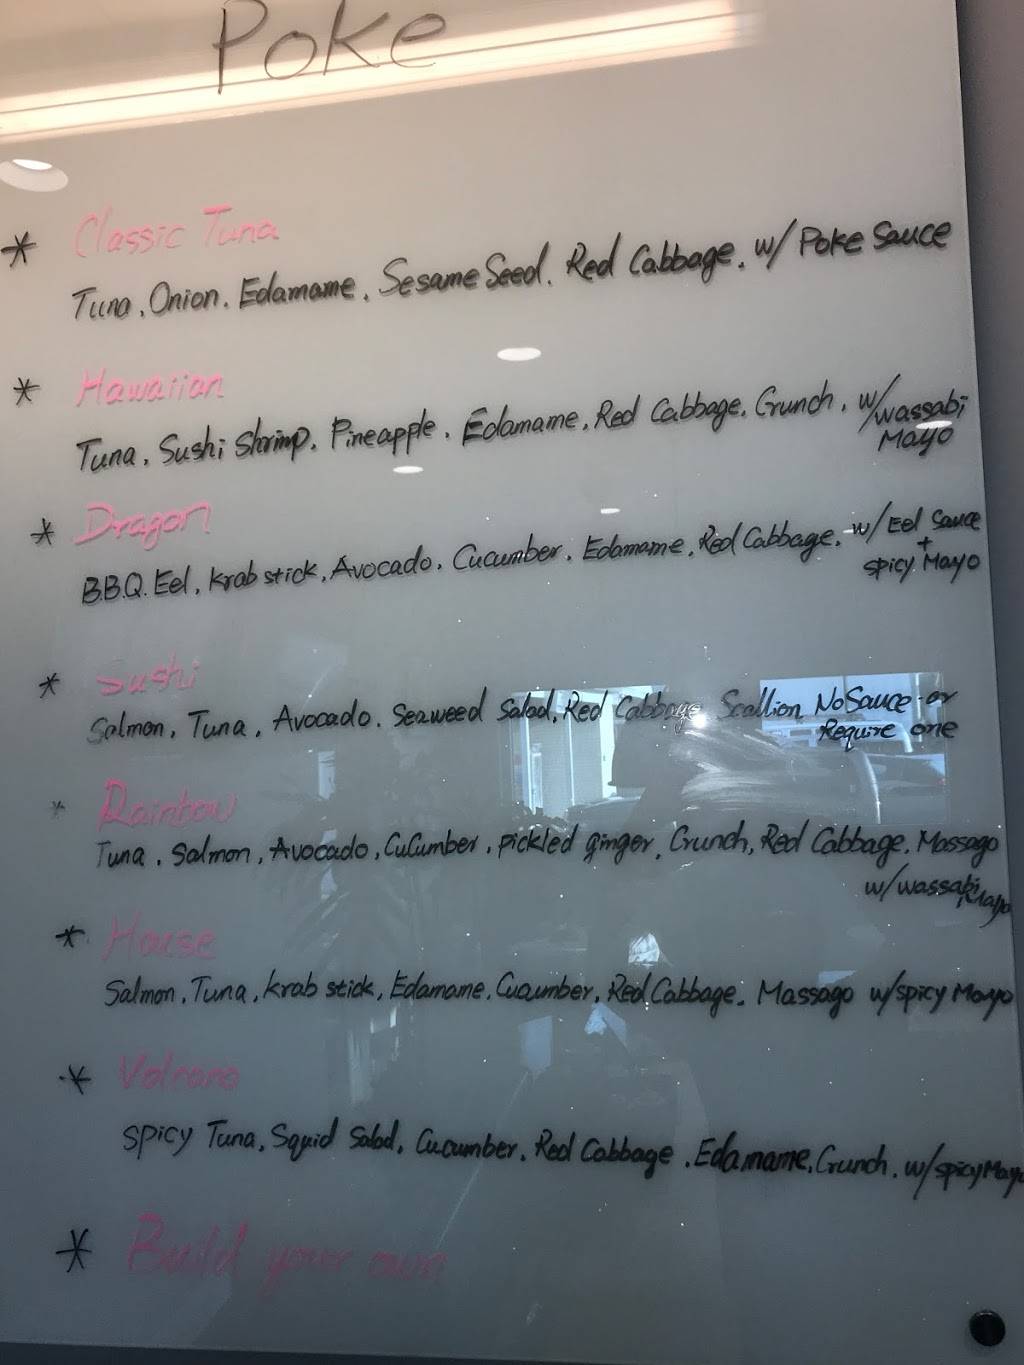 Poke
* Classic Tuna
Tuna, Onion, Edamame, Sesame Seed, Red Cabbage, w/ Poke Sauce
* Hawaiian
Tuna, Sushi Shrimp, Pineapple, Edamame, Red Cabbage, Crunch, w/ wassabi
Mayo
* Dragon
B.B.Q. Eel, Krab stick, Avocado, Cucumber, Edamame, Red Cabbage, w/ Eel Sauce
+
spicy Mayo
* Sushi
Salmon, Tuna, Avocado, Seaweed Salad, Red Cabbage Scallion No Sauce or
Require one
* Rainbow
Tuna, Salmon, Avocado, CuCumber, Pickled ginger, Crunch, Red Cabbage, Massago
w/ wassabi Mayo
* House
Salmon, Tuna, Krab stick, Edamame, Cucumber, Red Cabbage, Massago w/ spicy Mayo
* Volcano
Spicy Tuna, Squid Salad, Cucumber, Red Cabbage, Edamame, Crunch, w/ spicy Mayo
* Build your own